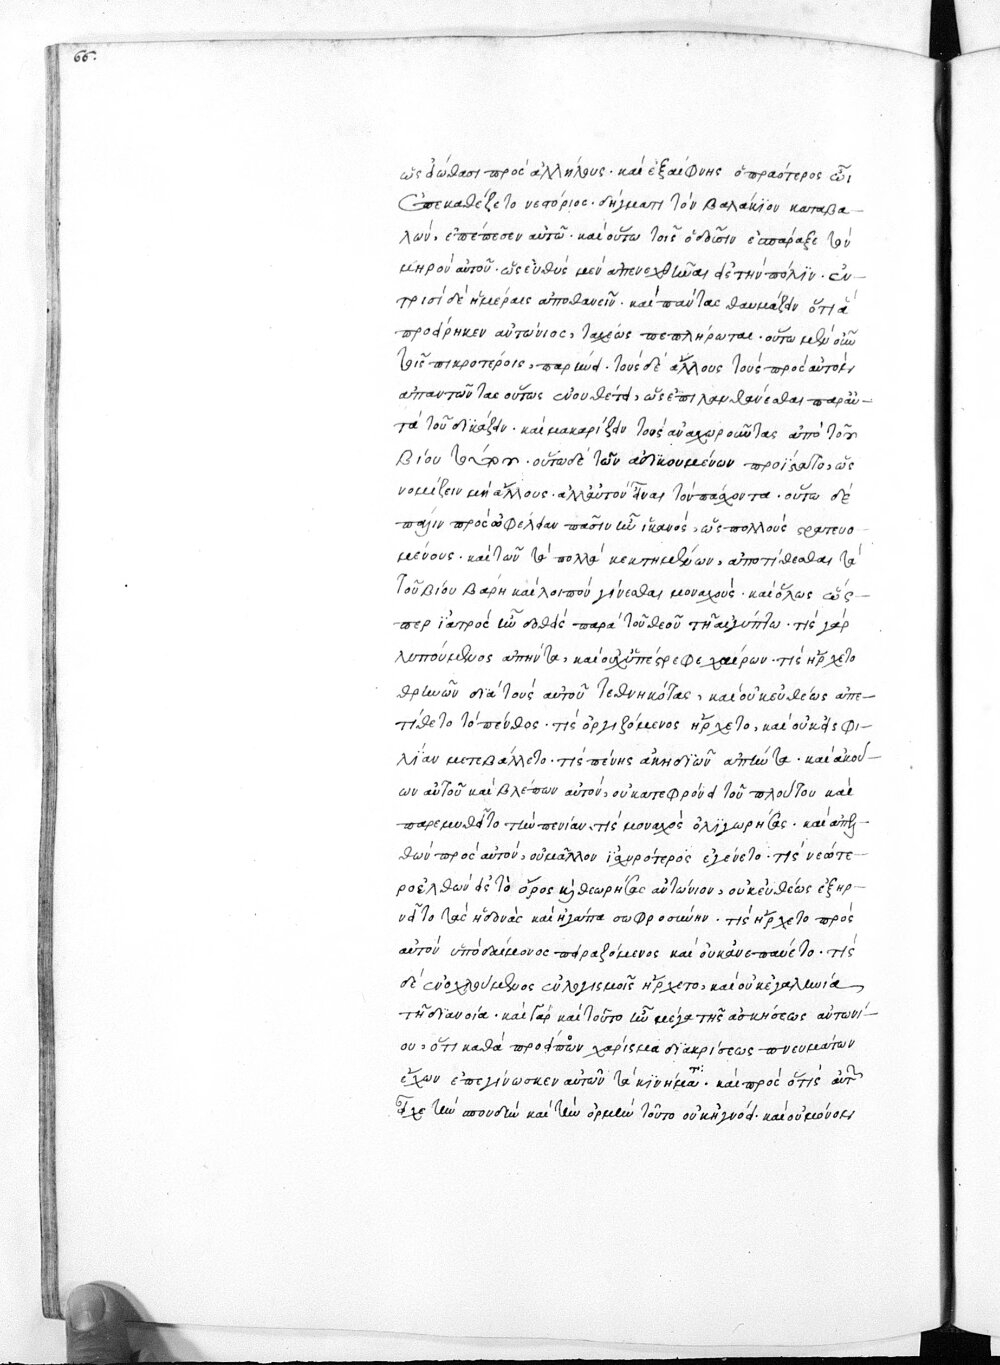 66.
ὡς εἰώθασι πρὸς ἀλλήλους· καὶ ἐξαίφνης ὁ πραότερος ᾧ
ἐπεκαθέζετο νεστόριος· δήγματι τὸν βαλάκιον καταβα–
λών, ἐπέπεσεν αὐτῷ· καὶ οὕτω τοῖς ὀδοῦσιν ἐσπάραξε τὸν
μηρὸν αὐτοῦ· ὡς εὐθὺς μὲν ἀπενεχθῆναι εἰς τὴν πόλιν· ἐν
τρισὶ δὲ ἡμέραις ἀποθανεῖν· καὶ πάντας θαυμάζειν ὅτι ἃ
προείρηκεν ἀντώνιος, ταχέως πεπλήρωται· οὕτω μὲν οὖν
τοῖς πικροτέροις, παρῄνει· τοὺς δὲ ἄλλους τοὺς πρὸς αὐτὸν
ἀπαντῶντας οὕτως ἐνουθέτει, ὡς ἐπιλανθάνεσθαι παραυ–
τὰ τοῦ δικάζειν· καὶ μακαρίζειν τοὺς ἀναχωροῦντας ἀπὸ τοῦ
βίου τούτου· οὕτω δὲ τῶν ἀδικουμένων προΐστατο, ὡς
νομίζειν μὴ ἄλλους· ἀλλ' αὐτὸν εἶναι τὸν πάσχοντα· οὕτω δὲ
πάλιν πρὸς ὠφέλειαν πᾶσιν ἦν ἱκανός, ὡς πολλοὺς στρατευο
μένους· καὶ τῶν τὰ πολλὰ κεκτημένων, ἀποτίθεσθαι τὰ
τοῦ βίου βάρη καὶ λοιπὸν γίνεσθαι μοναχούς· καὶ ὅλως ὥς–
περ ἰατρὸς ἦν δοθεὶς παρὰ τοῦ θεοῦ τῇ αἰγύπτῳ· τίς γὰρ
λυπούμενος ἀπήντα, καὶ οὐχ ὑπέστρεφε χαίρων· τίς ἤρχετο
θρηνῶν διὰ τοὺς αὐτοῦ τεθνηκότας, καὶ οὐκ εὐθέως ἀπε–
τίθετο τὸ πένθος· τίς ὀργιζόμενος ἤρχετο, καὶ οὐκ εἰς φι–
λίαν μετεβάλλετο· τίς πένης ἀκηδιῶν ἀπήντα· καὶ ἀκού–
ων αὐτοῦ καὶ βλέπων αὐτόν, οὐ κατεφρόνει τοῦ πλούτου καὶ
παρεμυθεῖτο τὴν πενίαν, τίς μοναχὸς ὀλιγωρήσας· καὶ ἀπελ–
θὼν πρὸς αὐτόν, οὐ μᾶλλον ἰσχυρότερος ἐγένετο· τίς νεώτε–
ρος ἐλθὼν εἰς τὸ ὄρος καὶ θεωρήσας ἀντώνιον, οὐκ εὐθέως ἐξηρ–
νεῖτο τὰς ἡδονὰς καὶ ἠγάπα σωφροσύνην· τίς ἤρχετο πρὸς
αὐτὸν ὑπὸ δαίμονος πειραζόμενος καὶ οὐκ ἀνεπαύετο· τίς
δὲ ἐνοχλούμενος ἐν λογισμοῖς ἤρχετο, καὶ οὐκ ἐγαληνία
τῇ διανοίᾳ· καὶ γὰρ καὶ τοῦτο ἦν μέγα τῆς ἀσκήσεως ἀντωνί–
ου, ὅτι καθὰ προεῖπον χάρισμα διακρίσεως πνευμάτων
ἔχων ἐπεγίνωσκεν αὐτῶν τὰ κινήματα· καὶ πρὸς ὅ τις αὐτῶν
εἶχε τὴν σπουδὴν καὶ τὴν ὁρμὴν τοῦτο οὐκ ἠγνόει· καὶ οὐ μόνον